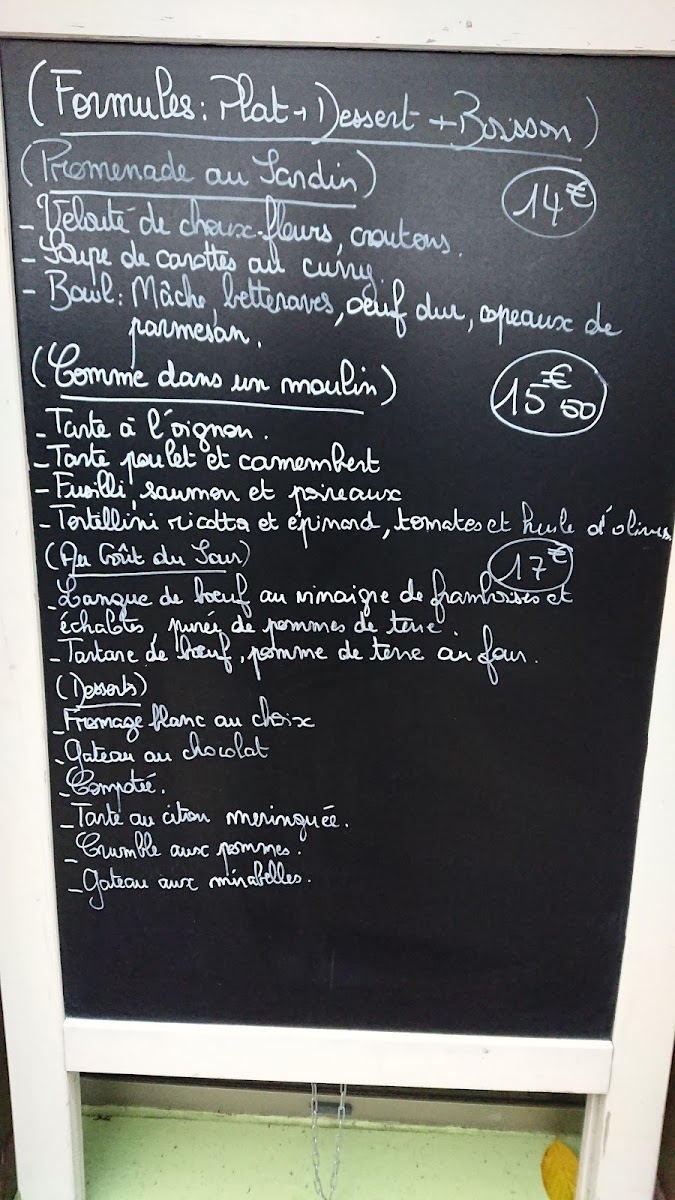 (Formules: Plat + Dessert + Boisson)
(Promenade au Jardin)
14€
- Velouté de choux-fleurs, croutons.
- Soupe de carottes au curry
- Bowl: Mâche, betteraves, oeuf dur, copeaux de
parmesan.
(Comme dans un moulin)
15€50
- Tarte à l'oignon.
- Tarte poulet et camembert
- Fusilli, saumon et poireaux
- Tortellini ricotta et épinard, tomates et huile d'olives
(Au Goût du Jour)
17€
- Langue de boeuf au vinaigre de framboises et
échalotes, purée de pommes de terre.
- Tartare de boeuf, pomme de terre au four.
(Desserts)
- Fromage blanc au choix
- Gateau au chocolat
- Compotée.
- Tarte au citron meringuée.
- Crumble aux pommes.
- Gateau aux mirabelles.